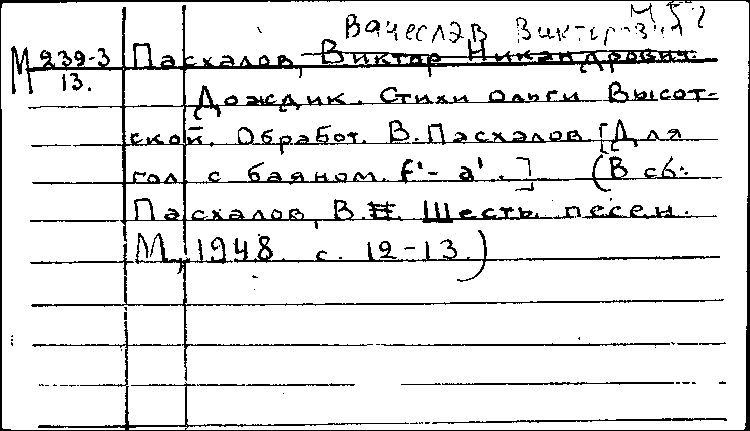 М 52
Вячеслав Викторович
М 239-3 Пасхалов, Виктор Никандрович.
13.
Дождик. Стихи Ольги Высот-
ской. Обработ. В. Пасхалов [Для
гол. с баяном. f¹- a¹.] (В сб:
Пасхалов, В. Н. Шесть песен.
М., 1948. с. 12-13.)